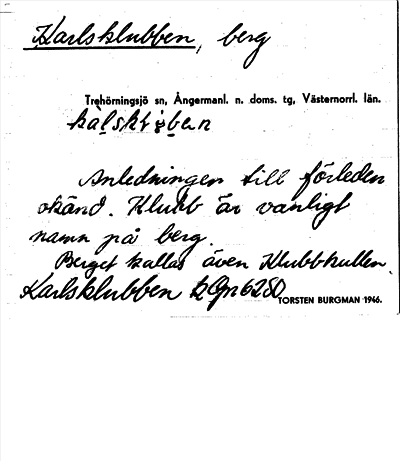 Karlsklubben, berg
Trehörningsjö sn, Ångermanl. n. doms. tg, Västernorrl. län.
Anledningen till förleden
okänd. Klubb är vanligt
namn på berg.
Berget kallas även Klubbkullen.
Karlsklubben
TORSTEN BURGMAN 1946.